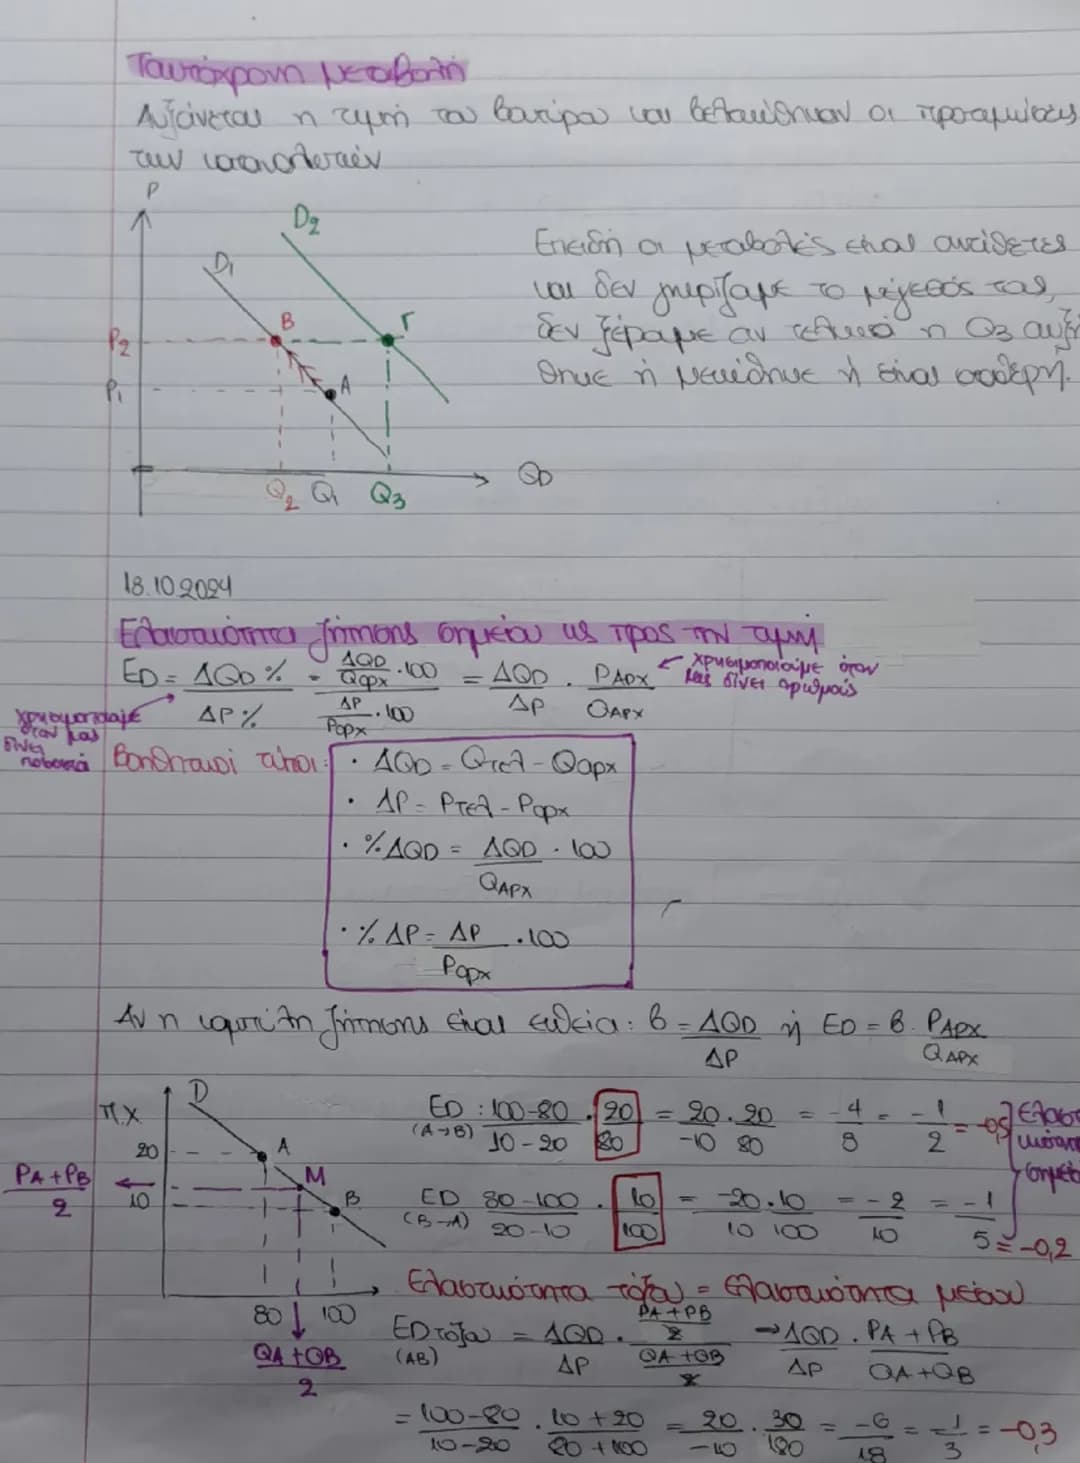 Ταυτόχρονη μεταβολή
Αυξάνεται η τιμή του βουτύρου και βελτιώθηκαν οι προτιμήσεις
των καταναλωτών
P
D2
D1
B
Γ
P2
A
P1
QD
Q2 Q1 Q3
Επειδή οι μεταβολές είναι αντίθετες
και δεν γνωρίζαμε το μέγεθός τους,
δεν ξέραμε αν τελικά η Q3 αυξή
θηκε ή μειώθηκε ή είναι σταθερή.
18.10.2024
Ελαστικότητα ζήτησης σημείου ως προς την τιμή
ED = ΔQD % / ΔP % = ΔQD/Qαρχ · 100 / ΔP/Pαρχ · 100 = ΔQD/ΔP · PΑΡΧ/QΑΡΧ
← χρησιμοποιούμε όταν
μας δίνει αριθμούς
χρησιμοποιούμε
όταν μας
δίνει
ποσοστά
Βοηθητικοί τύποι:
· ΔQD = Qτελ - Qαρχ
· ΔP = Pτελ - Pαρχ
· % ΔQD = ΔQD/QΑΡΧ · 100
· % ΔP = ΔP/Pαρχ · 100
Αν η καμπύλη ζήτησης είναι ευθεία: β = ΔQD/ΔP ή ED = β · PΑΡΧ/QΑΡΧ
D
π.χ
20
A
M
PA+PB/2 ←
10
B
80 100
QA+QB/2
ED (A→B) : 100-80/10-20 · 20/80 = 20/-10 · 20/80 = -4/8 = -1/2 = -0,5
ED (B→A) 80-100/20-10 · 10/100 = -20/10 · 10/100 = -2/10 = -1/5 = -0,2
Ελαστικότητα τόξου = Ελαστικότητα μέσου
ED τόξου (AB) = ΔQD/ΔP · PA+PB/2 / QA+QB/2 → ΔQD/ΔP · PA+PB/QA+QB
= 100-80/10-20 · 10+20/80+100 = 20/-10 · 30/180 = -6/18 = -1/3 = -0,3